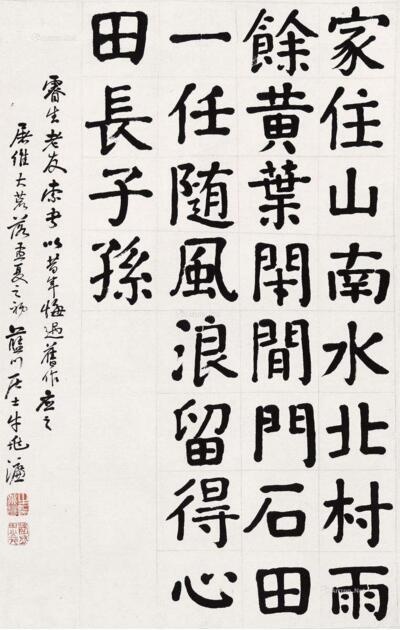 家住山南水北村雨
餘黄葉閉閒門石田
一任隨風浪留得心
田長子孫
睿生老友索書以昔年悔過舊作應之
屠維大荒落孟夏之初藍川居士牛兆濂